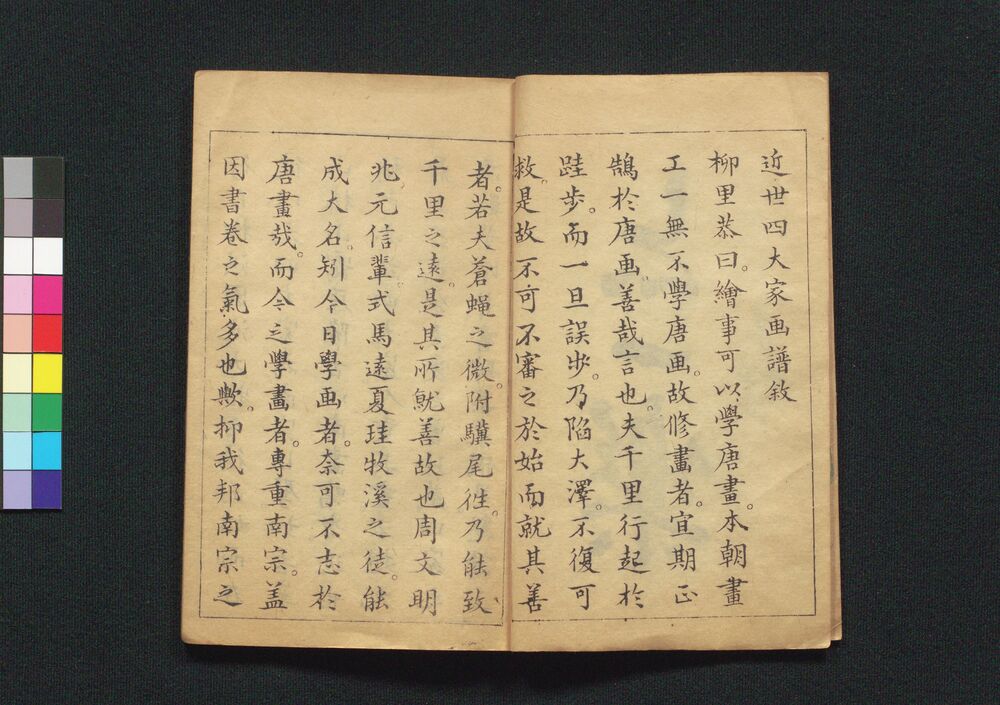 近世四大家画譜敘
柳里恭曰。繪事可以學唐畫。本朝畫
工一無不學唐画。故修畫者。宜期正
鵠於唐画。善哉言也。夫千里行起於
跬步。而一旦誤步。乃陷大澤。不復可
救。是故不可不審之於始而就其善
者。若夫蒼蝿之微。附驥尾徃。乃能致
千里之遠。是其所就善故也周文明
兆元信輩式馬遠夏珪牧溪之徒。能
成大名。矧今日學画者。奈可不志於
唐畫哉。而今之學畫者。專重南宗。盖
因書卷之氣多也歟。抑我邦南宗之